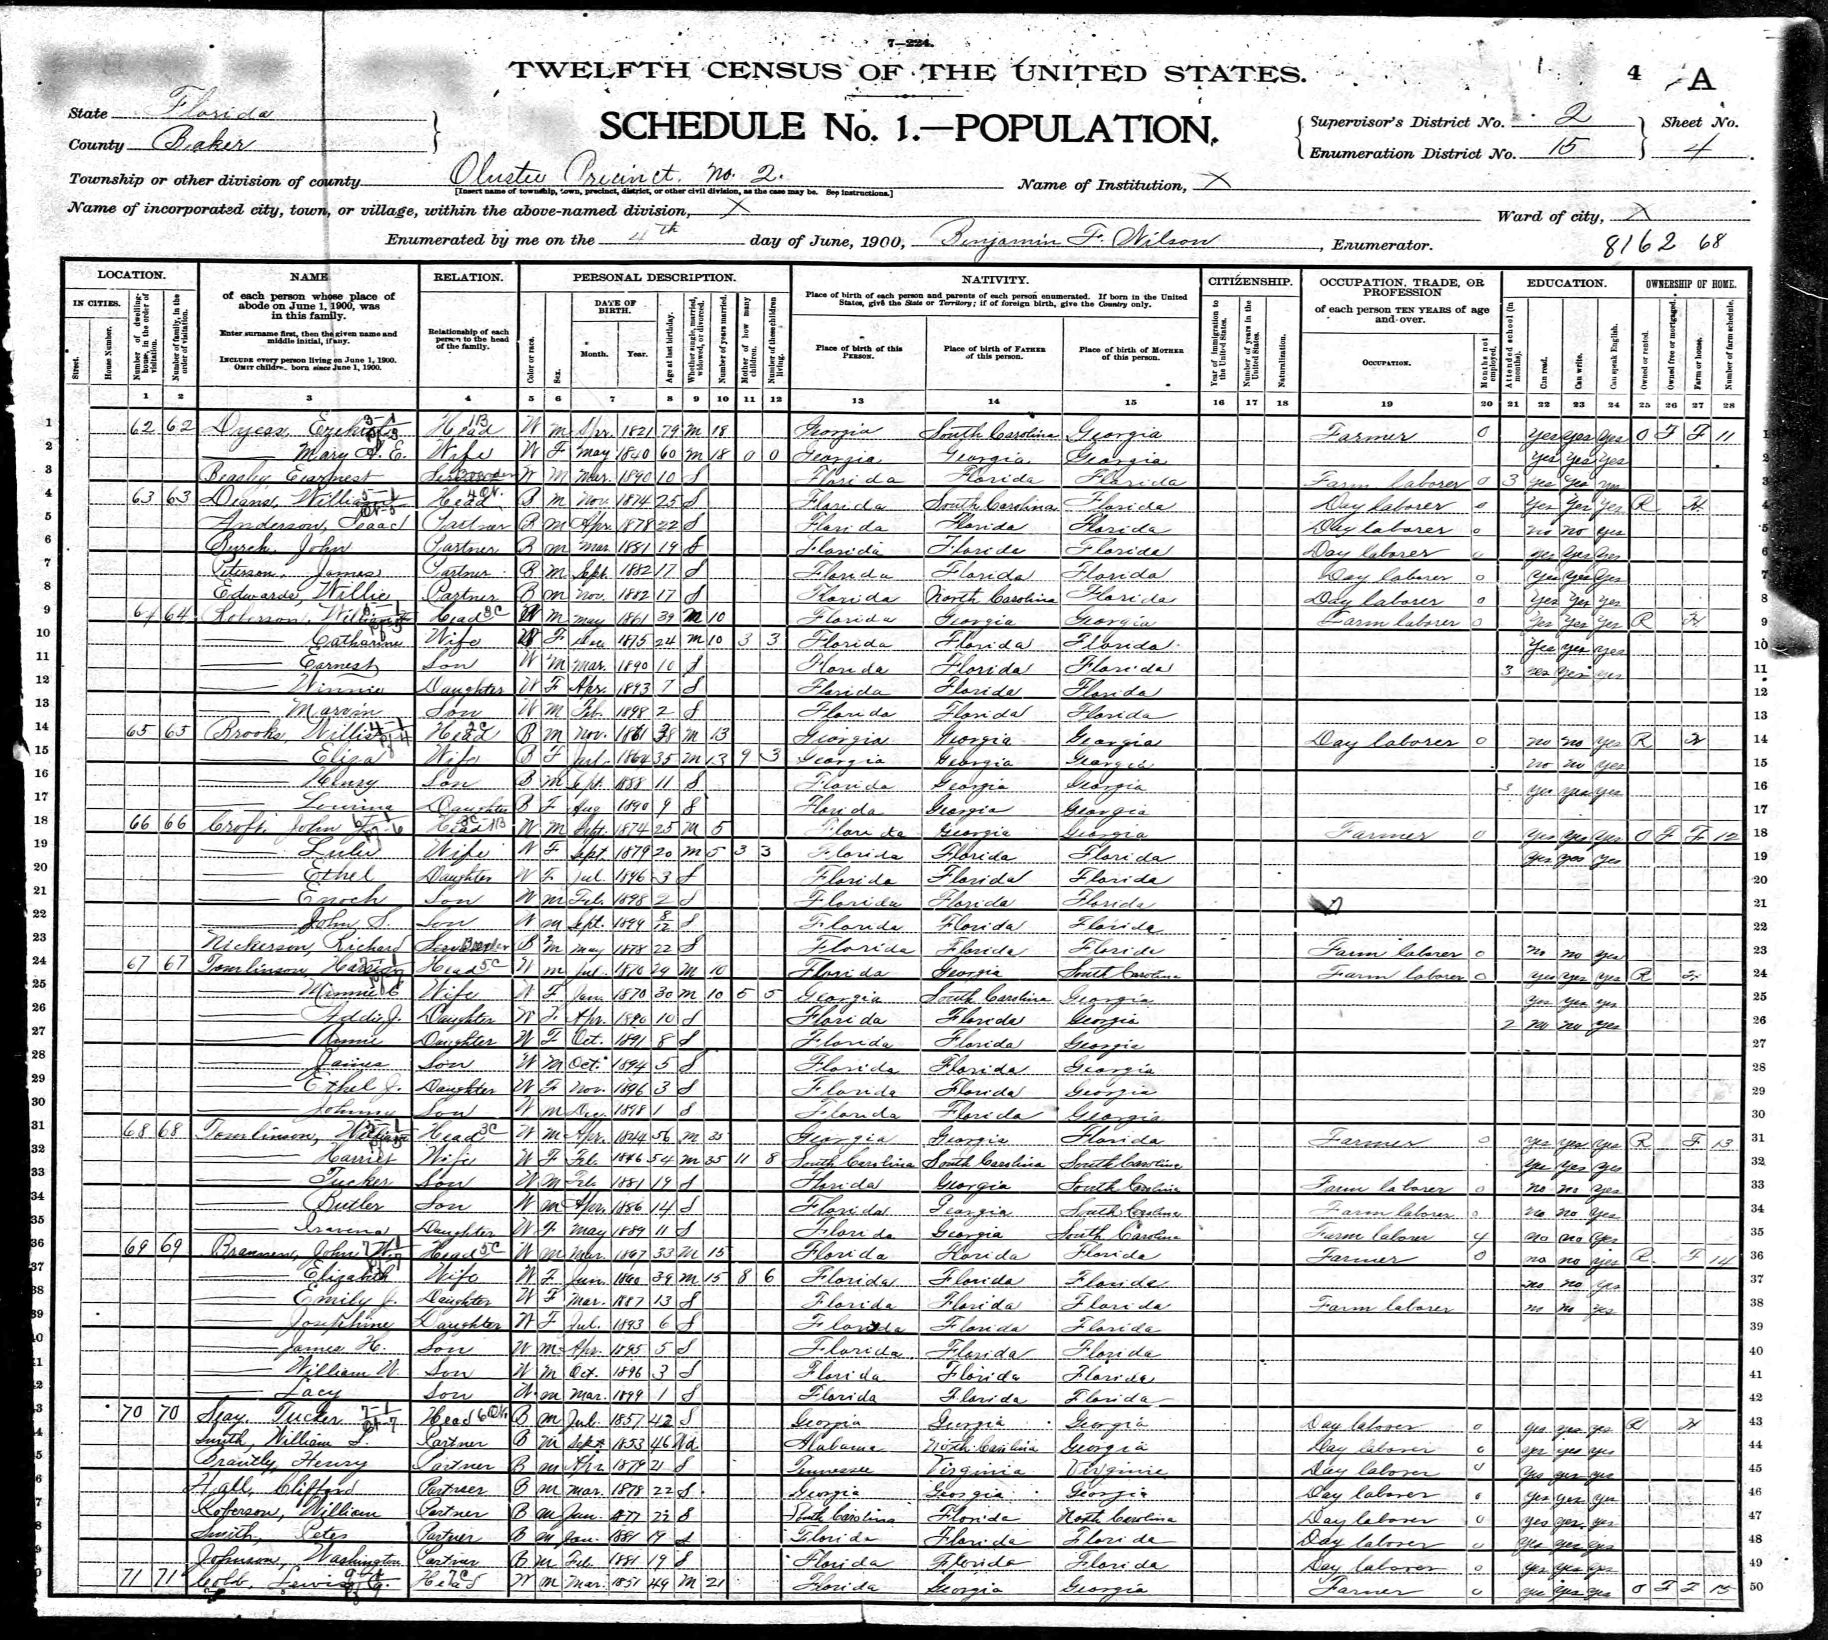 7—224.
TWELFTH CENSUS OF THE UNITED STATES.
4 A
State Florida
SCHEDULE No. 1.—POPULATION.
County Baker
Supervisor's District No. 2 Sheet No.
Enumeration District No. 15 4
Township or other division of county Olustee Precinct. No. 2. Name of Institution, X
[Insert name of township, town, precinct, district, or other civil division, as the case may be. See instructions.]
Name of incorporated city, town, or village, within the above-named division, X Ward of city, X
Enumerated by me on the 4th day of June, 1900, Benjamin F. Wilson, Enumerator.
8162 68
LOCATION. NAME RELATION. PERSONAL DESCRIPTION. NATIVITY. CITIZENSHIP. OCCUPATION, TRADE, OR PROFESSION EDUCATION. OWNERSHIP OF HOME.
IN CITIES. Street. House Number. Number of dwelling-house, in the order of visitation. Number of family, in the order of visitation.
of each person whose place of abode on June 1, 1900, was in this family.
Enter surname first, then the given name and middle initial, if any.
INCLUDE every person living on June 1, 1900. OMIT children born since June 1, 1900.
Relationship of each person to the head of the family.
Color or race. Sex. DATE OF BIRTH. Month. Year. Age at last birthday. Whether single, married, widowed, or divorced. Number of years married. Mother of how many children. Number of these children living.
Place of birth of each person and parents of each person enumerated. If born in the United States, give the State or Territory; if of foreign birth, give the Country only.
Place of birth of this PERSON. Place of birth of FATHER of this person. Place of birth of MOTHER of this person.
Year of immigration to the United States. Number of years in the United States. Naturalization.
of each person TEN YEARS of age and over.
OCCUPATION. Months not employed.
Attended school (in months). Can read. Can write. Can speak English.
Owned or rented. Owned free or mortgaged. Farm or house. Number of farm schedule.
1 2 3 4 5 6 7 8 9 10 11 12 13 14 15 16 17 18 19 20 21 22 23 24 25 26 27 28
1 62 62 Dyess, Head W M Apr. 1821 79 M 18 Georgia South Carolina Georgia Farmer 0 yes yes yes O F F 11 1
2 Mary E. Wife W F May 1840 60 M 18 0 0 Georgia Georgia Georgia yes yes yes 2
3 Earnest W M Mar. 1890 10 S Florida Florida Florida Farm laborer 0 3 yes yes yes 3
4 63 63 William Head B M Nov. 1874 25 S Florida South Carolina Florida Day laborer 0 yes yes yes R H 4
5 Anderson, Isaac Partner B M Apr. 1878 22 S Florida Florida Florida Day laborer 0 no no yes 5
6 Burch, John Partner B M Mar. 1881 19 S Florida Florida Florida Day laborer 0 yes yes yes 6
7 Peterson, James Partner B M Sept. 1882 17 S Florida Florida Florida Day laborer 0 yes yes yes 7
8 Edwards, Willie Partner B M Nov. 1882 17 S Florida North Carolina Florida Day laborer 0 yes yes yes 8
9 64 64 Roberson, Head W M May 1861 39 M 10 Florida Georgia Georgia Farm laborer 0 yes yes yes R H 9
10 Catharine Wife W F Dec 1875 24 M 10 3 3 Florida Florida Florida yes yes yes 10
11 Earnest Son W M Mar. 1890 10 S Florida Florida Florida 3 yes yes yes 11
12 Winnie Daughter W F Apr. 1893 7 S Florida Florida Florida 12
13 Marvin Son W M Feb. 1898 2 S Florida Florida Florida 13
14 65 65 Brooks, Willis Head B M Nov. 1861 38 M 13 Georgia Georgia Georgia Day laborer 0 no no yes R H 14
15 Eliza Wife B F Jul. 1864 35 M 13 9 3 Georgia Georgia Georgia no no yes 15
16 Henry Son B M Sept. 1888 11 S Florida Georgia Georgia yes yes yes 16
17 Daughter B F Aug 1890 9 S Florida Georgia Georgia 17
18 66 66 Croft, John Head W M Sept. 1874 25 M 5 Florida Georgia Georgia Farmer 0 yes yes yes O F F 12 18
19 Lulu Wife W F Sept. 1879 20 M 5 3 3 Florida Florida Florida yes yes yes 19
20 Ethel Daughter W F Jul. 1896 3 S Florida Florida Florida 20
21 Enoch Son W M Feb. 1898 2 S Florida Florida Florida 21
22 John S. Son W M Sept. 1899 8/12 S Florida Florida Florida 22
23 Nickerson, Richard B M May 1878 22 S Florida Florida Florida Farm laborer 0 no no yes 23
24 67 67 Tomlinson, Head W M Jul. 1870 29 M 10 Florida Georgia South Carolina Farm laborer 0 yes yes yes R 24
25 Minnie C Wife W F Jan. 1870 30 M 10 5 5 Georgia South Carolina Georgia yes yes yes 25
26 Addie J. Daughter W F Apr. 1890 10 S Florida Florida Georgia 2 no no yes 26
27 Annie Daughter W F Oct. 1891 8 S Florida Florida Georgia 27
28 James Son W M Oct. 1894 5 S Florida Florida Georgia 28
29 Ethel J. Daughter W F Nov. 1896 3 S Florida Florida Georgia 29
30 Johnny Son W M Dec. 1898 1 S Florida Florida Georgia 30
31 68 68 Tomlinson, William Head W M Apr. 1844 56 M 35 Georgia Georgia Florida Farmer 0 yes yes yes R F 13 31
32 Harriet Wife W F Feb. 1846 54 M 35 11 8 South Carolina South Carolina South Carolina yes yes yes 32
33 Tucker Son W M Feb. 1881 19 S Florida Georgia South Carolina Farm laborer 0 no no yes 33
34 Butler Son W M Apr. 1886 14 S Florida Georgia South Carolina Farm laborer 0 no no yes 34
35 Daughter W F May 1889 11 S Florida Georgia South Carolina Farm laborer 4 no no yes 35
36 69 69 Brannen, John W. Head W M Mar. 1867 33 M 15 Florida Florida Florida Farmer 0 no no yes R F 14 36
37 Elizabeth Wife W F Jun. 1860 39 M 15 8 6 Florida Florida Florida no no yes 37
38 Emily J. Daughter W F Mar. 1887 13 S Florida Florida Florida Farm laborer no no yes 38
39 Josephine Daughter W F Jul. 1893 6 S Florida Florida Florida 39
40 James H. Son W M Apr. 1895 5 S Florida Florida Florida 40
41 William W. Son W M Oct. 1896 3 S Florida Florida Florida 41
42 Lacy Son W M Mar. 1899 1 S Florida Florida Florida 42
70 70 Seay, Tucker Head B M Jul. 1857 42 S Georgia Georgia Georgia Day laborer 0 yes yes yes R H 43
Smith, William S. Partner B M Sept 1853 46 Wd. Alabama North Carolina Georgia Day laborer 0 yes yes yes 44
Brantly, Henry Partner B M Apr. 1879 21 S Tennessee Virginia Virginia Day laborer 0 yes yes yes 45
Hall, Clifford Partner B M Mar. 1878 22 S Georgia Georgia Georgia Day laborer 0 yes yes yes 46
Roberson, William Partner B M Jun. 1877 22 S South Carolina Florida North Carolina Day laborer 0 yes yes yes 47
Smith, Peter Partner B M Jan. 1881 19 S Florida Florida Florida Day laborer 0 yes yes yes 48
Johnson, Washington Partner B M Feb. 1881 19 S Florida Florida Florida Day laborer 0 yes yes yes 49
71 71 Cobb, Lewis Head W M Mar. 1851 49 M 21 Florida Georgia Georgia Farmer 0 yes yes yes O F F 15 50